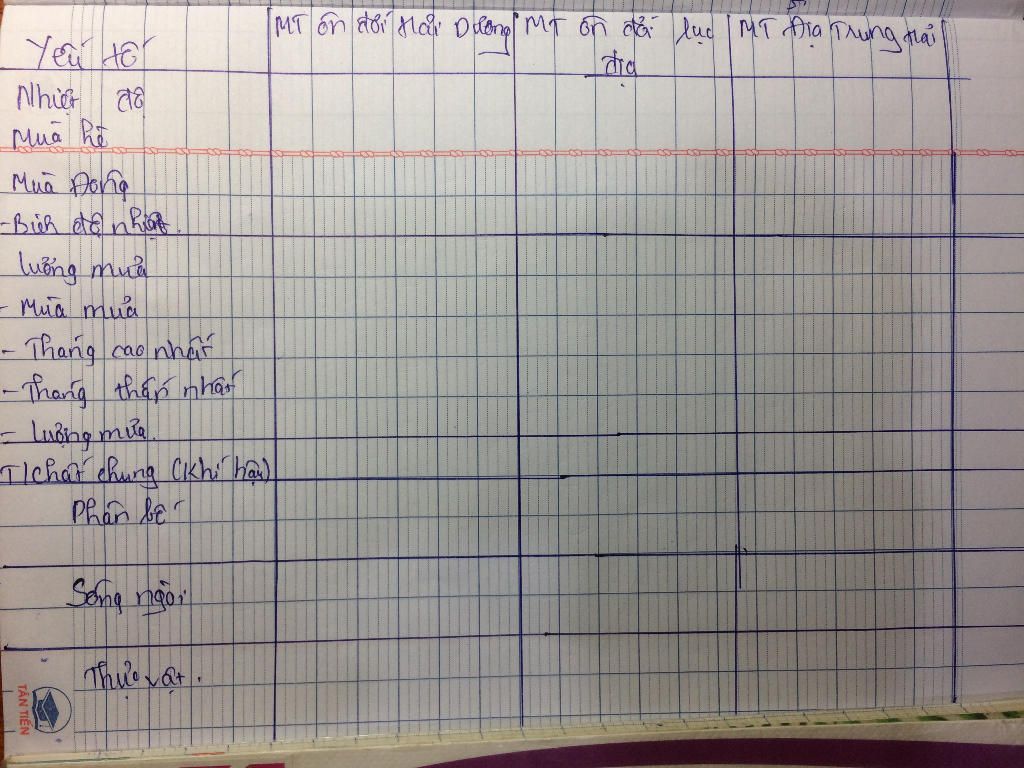 Yếu tố
MT ôn đới Hải Dương
MT ôn đới lục
địa
MT Địa Trung Hải
Nhiệt độ
Mùa hè
Mùa Đông
- Biên độ nhiệt.
Lượng mưa
- Mùa mưa
- Tháng cao nhất
- Tháng thấp nhất
- Lượng mưa.
T/chất chung (khí hậu)
Phân bố
Sông ngòi
Thực vật.
TÂN TIẾN